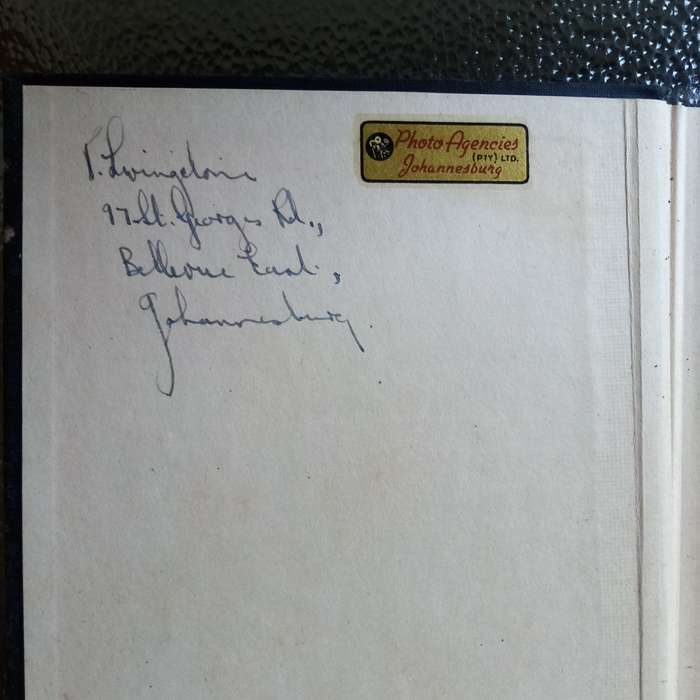 T. Livingstone
97 St. Georges Rd.,
Bellevue East.,
Johannesburg.
Photo Agencies
(PTY) LTD.
Johannesburg